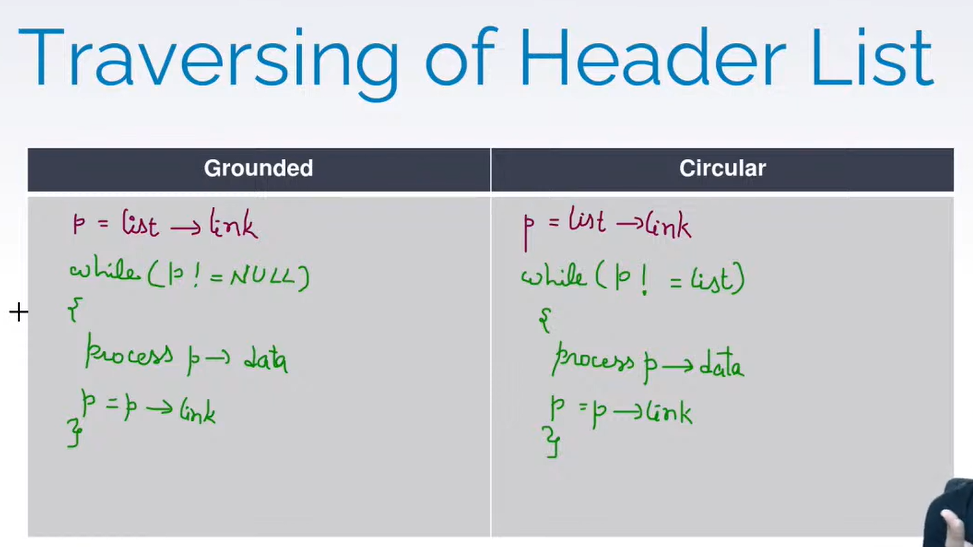 Traversing of Header List
Grounded
p = list → link
while (p! = NULL)
{
process p → data
p = p → link
}
Circular
p = list → link
while (p! = list)
{
process p → data
p = p → link
}